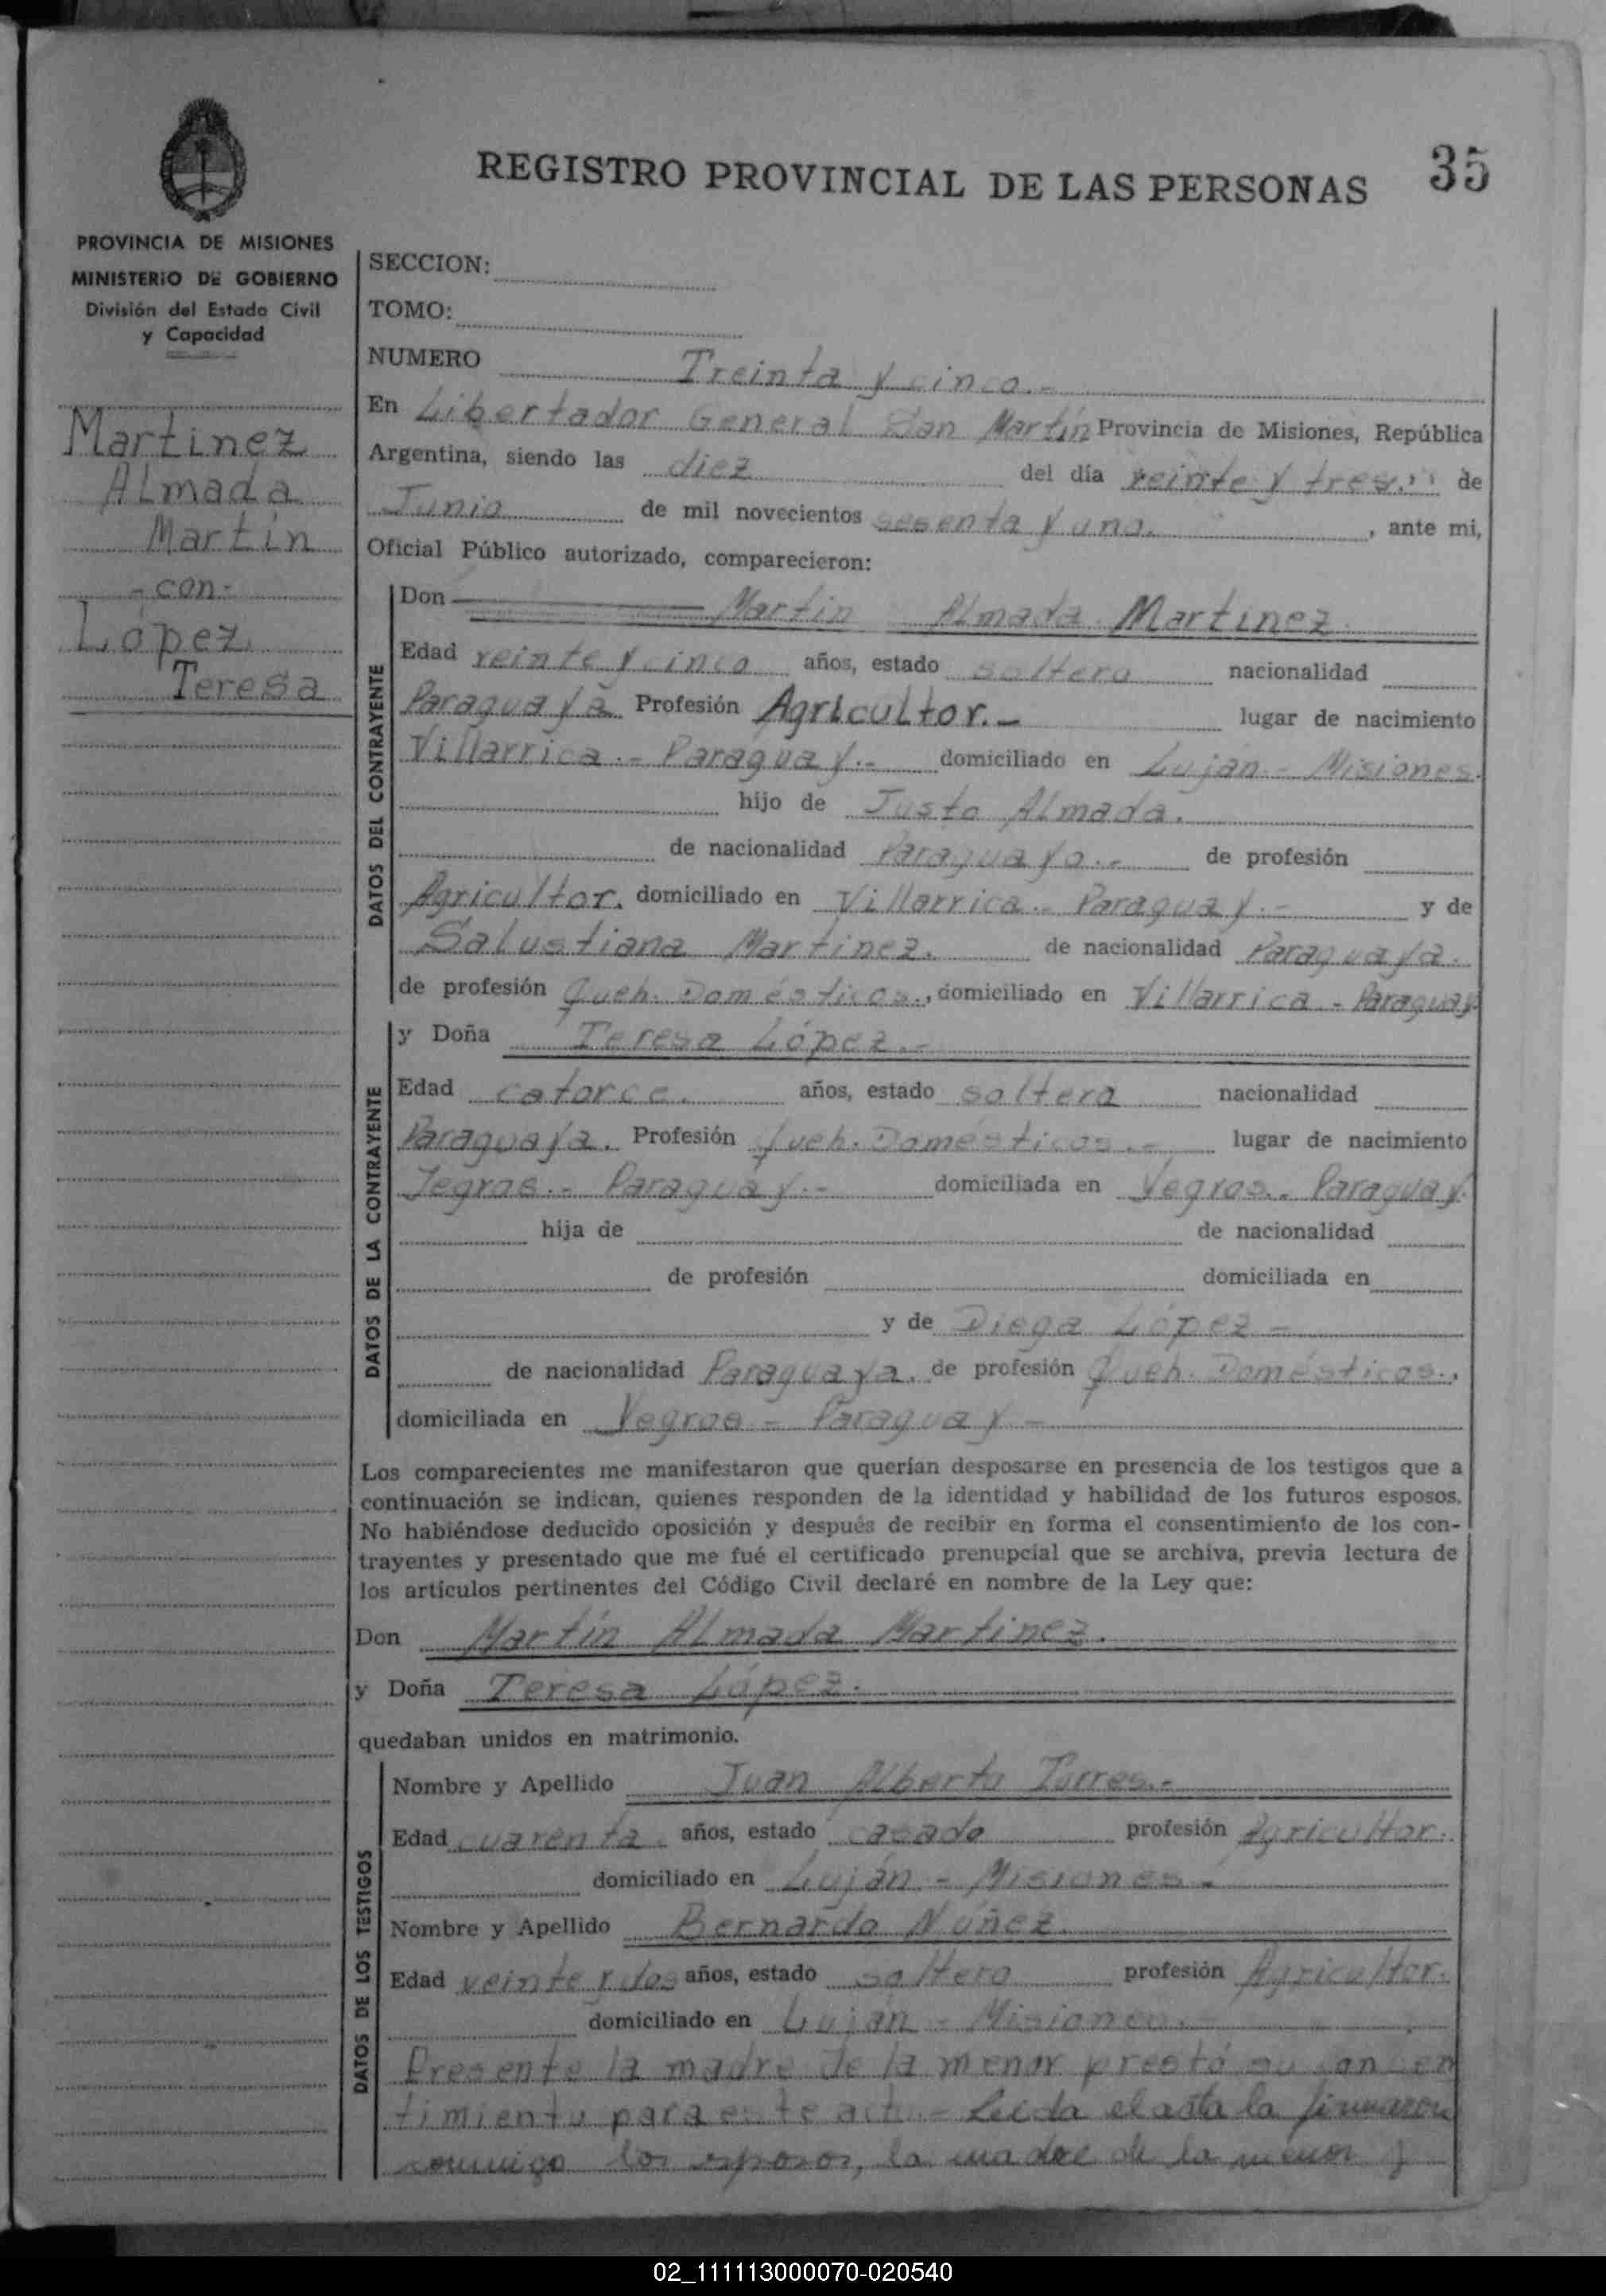 REGISTRO PROVINCIAL DE LAS PERSONAS
35
PROVINCIA DE MISIONES
MINISTERIO DE GOBIERNO
División del Estado Civil
y Capacidad
Martinez
Almada
Martin
- con -
López
Teresa
SECCION:
TOMO:
NUMERO Treinta y cinco.-
En Libertador General San Martín Provincia de Misiones, República
Argentina, siendo las diez del día veinte y tres. de
Junio de mil novecientos sesenta y uno. , ante mi,
Oficial Público autorizado, comparecieron:
DATOS DEL CONTRAYENTE
Don Martin Almada Martinez
Edad veinte y cinco años, estado soltero nacionalidad
Paraguaya Profesión Agricultor.- lugar de nacimiento
Villarrica.- Paraguay.- domiciliado en Luján - Misiones.
hijo de Justo Almada.
de nacionalidad Paraguayo.- de profesión
Agricultor. domiciliado en Villarrica.- Paraguay.- y de
Salustiana Martinez. de nacionalidad Paraguaya.
de profesión Queh. Domésticos., domiciliado en Villarrica - Paraguay
DATOS DE LA CONTRAYENTE
y Doña Teresa López.-
Edad catorce. años, estado soltera nacionalidad
Paraguaya. Profesión Queh. Domésticos.- lugar de nacimiento
Yegros.- Paraguay.- domiciliada en Yegros.. Paraguay.
hija de de nacionalidad
de profesión domiciliada en
y de Diega López -
de nacionalidad Paraguaya. de profesión Queh. Domésticos.,
domiciliada en Yegros - Paraguay -
Los comparecientes me manifestaron que querían desposarse en presencia de los testigos que a
continuación se indican, quienes responden de la identidad y habilidad de los futuros esposos.
No habiéndose deducido oposición y después de recibir en forma el consentimiento de los con-
trayentes y presentado que me fué el certificado prenupcial que se archiva, previa lectura de
los artículos pertinentes del Código Civil declaré en nombre de la Ley que:
Don Martín Almada Martinez.
y Doña Teresa López.
quedaban unidos en matrimonio.
DATOS DE LOS TESTIGOS
Nombre y Apellido Juan Alberto Torres.-
Edad cuarenta años, estado casado profesión Agricultor.
domiciliado en Luján - Misiones.
Nombre y Apellido Bernardo Núñez.
Edad veinte y dos años, estado soltero profesión Agricultor.
domiciliado en Luján - Misiones.
Presente la madre de la menor prestó su consen
timiento para este acto.- Leida el acta la firmaron
conmigo los esposos, la madre de la menor y
02_111113000070-020540